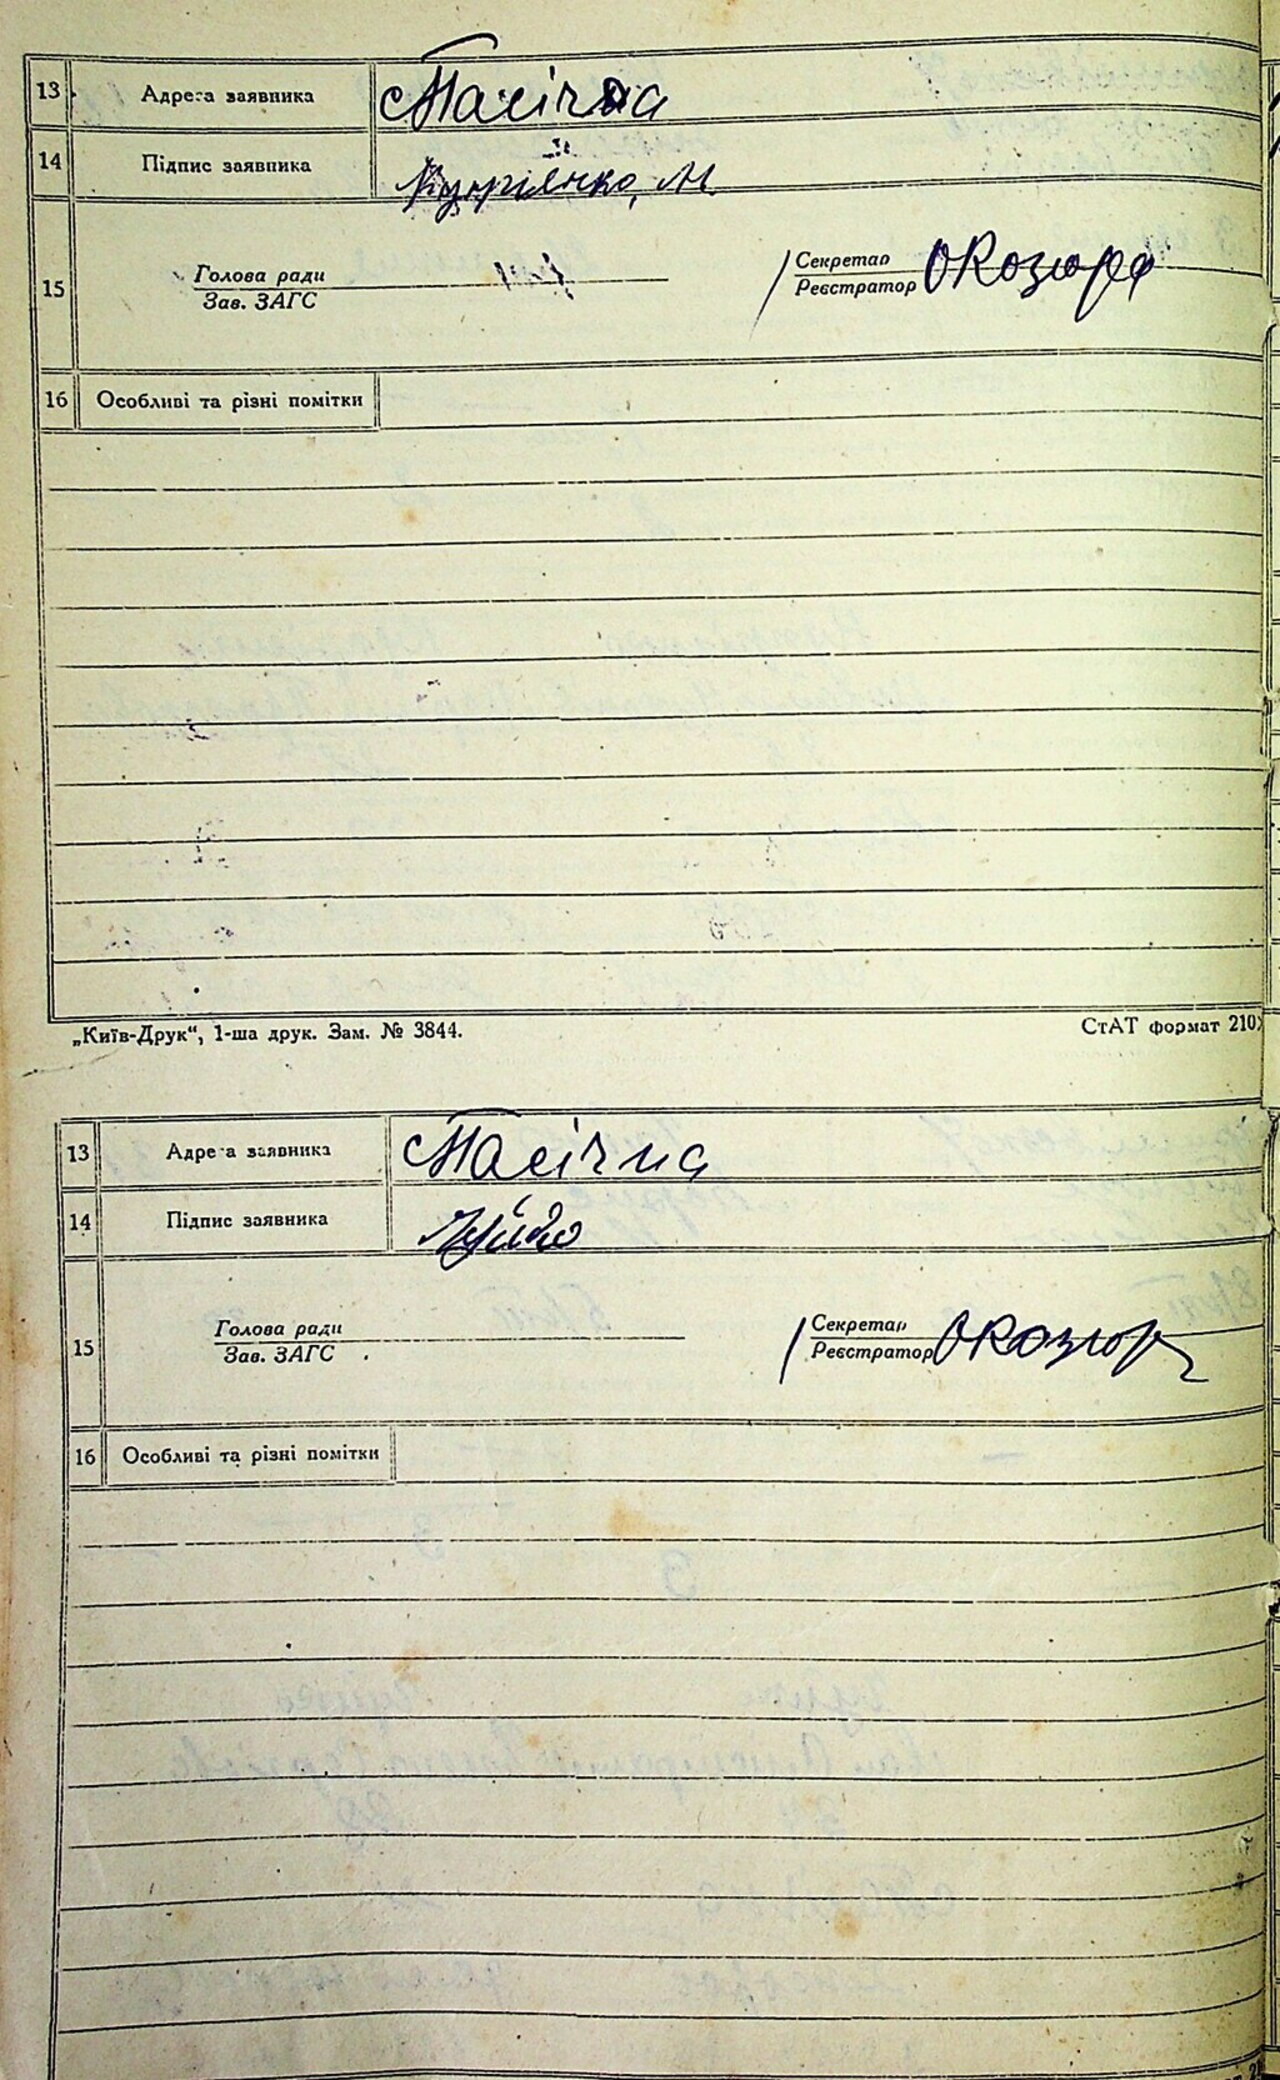 13 Адреса заявника с. Пасічна
14 Підпис заявника Купріянко, М.
15 Голова ради Секретар ОКозюра
Зав. ЗАГС Реєстратор
16 Особливі та різні помітки
„Київ-Друк“, 1-ша друк. Зам. № 3844. СтАТ формат 210
13 Адреса заявника с. Пасічна
14 Підпис заявника
15 Голова ради Секретар ОКозюр
Зав. ЗАГС Реєстратор
16 Особливі та різні помітки